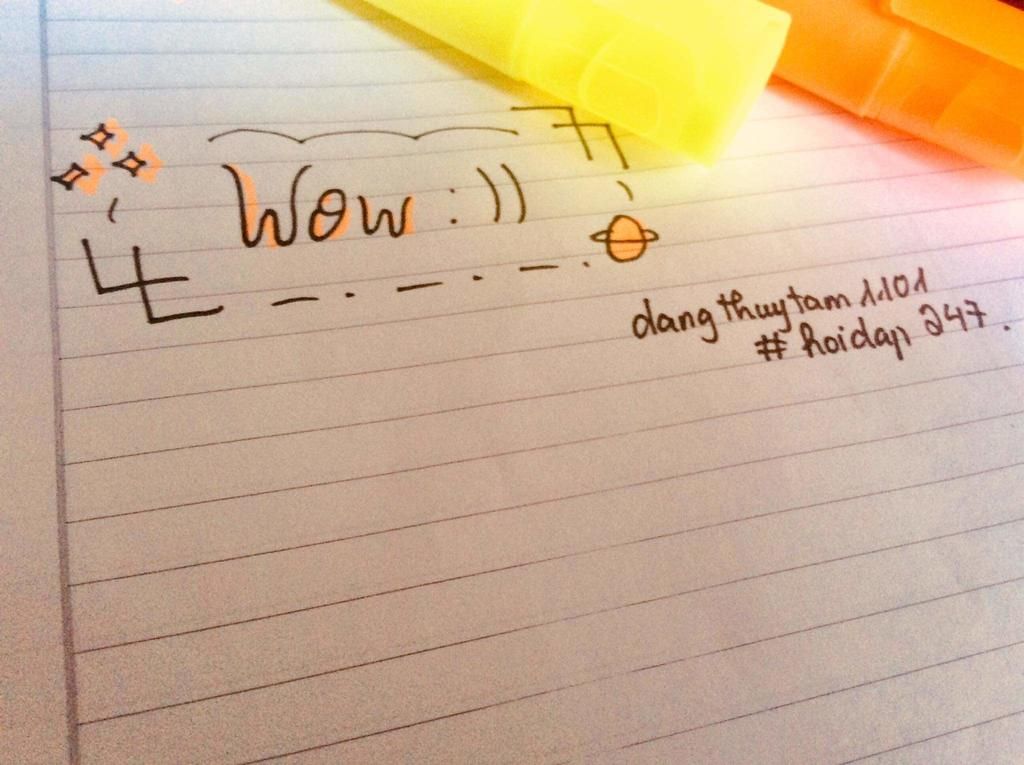 Wow :))
dangthuytam 1101
# hoidap 247.